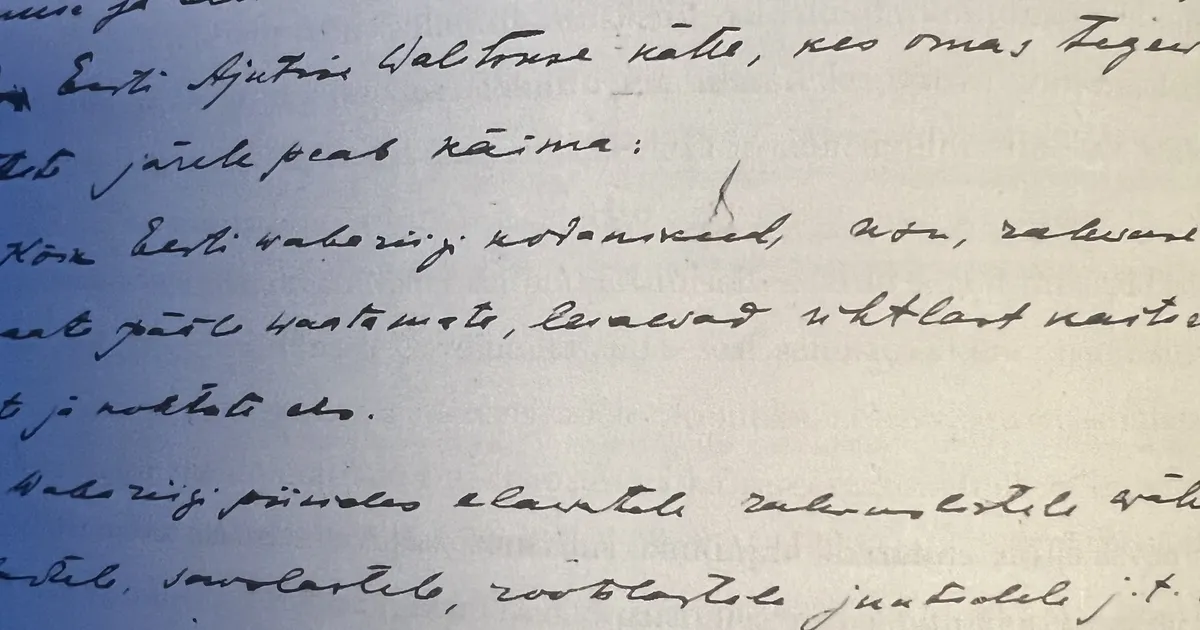 ja
Eesti Ajutise Walitsuse kätte, kes omas tegew
järele peab käima:
Kõik Eesti wabariigi kodanikud, usu, rahwuse
pääle waatamata, leiawad ühtlast kaitse
t ja kohtute ees.
Wabariigi piirides elawatele rahwuslistele wäh
sakslastele, rootslastele juutidele j.t.